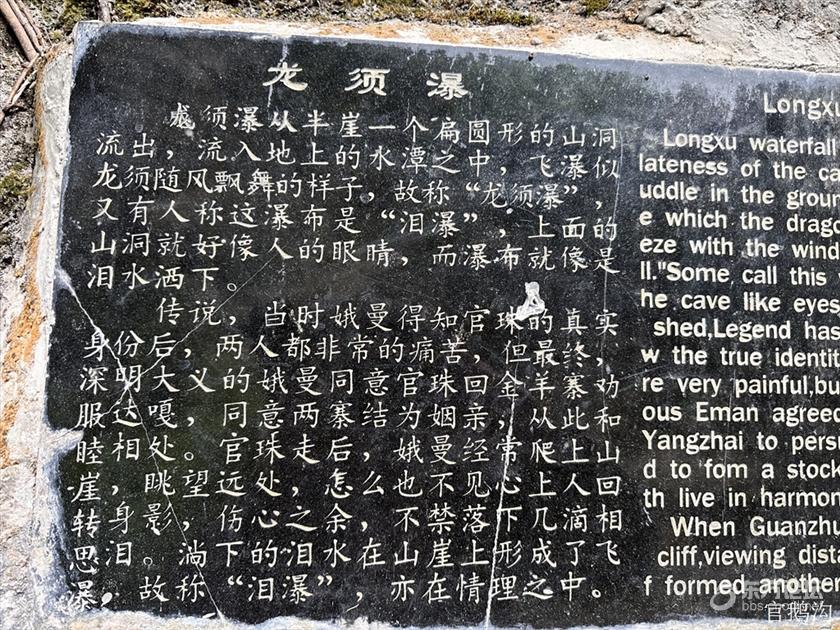 龙须瀑
龙须瀑从半崖一个扁圆形的山洞
流出，流入地上的水潭之中，飞瀑似
龙须随风飘舞的样子，故称“龙须瀑”，
又有人称这瀑布是“泪瀑”，上面的
山洞就好像人的眼睛，而瀑布就像是
泪水洒下。
传说，当时娥曼得知官珠的真实
身份后，两人都非常的痛苦，但最终，
深明大义的娥曼同意官珠回金羊寨劝
服达嘎，同意两寨结为姻亲，从此和
睦相处。官珠走后，娥曼经常爬上山
崖，眺望远处，怎么也不见心上人回
转身影，伤心之余，不禁落下几滴相
思泪。淌下的泪水在山崖上形成了飞
瀑，故称“泪瀑”，亦在情理之中。
Longxu
Longxu waterfall
lateness of the ca
uddle in the groun
e which the drago
eze with the wind
ll."Some call this
he cave like eyes
shed,Legend has
w the true identit
re very painful,bu
ous Eman agreed
Yangzhai to persu
d to fom a stock
th live in harmon
When Guanzhu
cliff,viewing dista
f formed another
官鹅沟